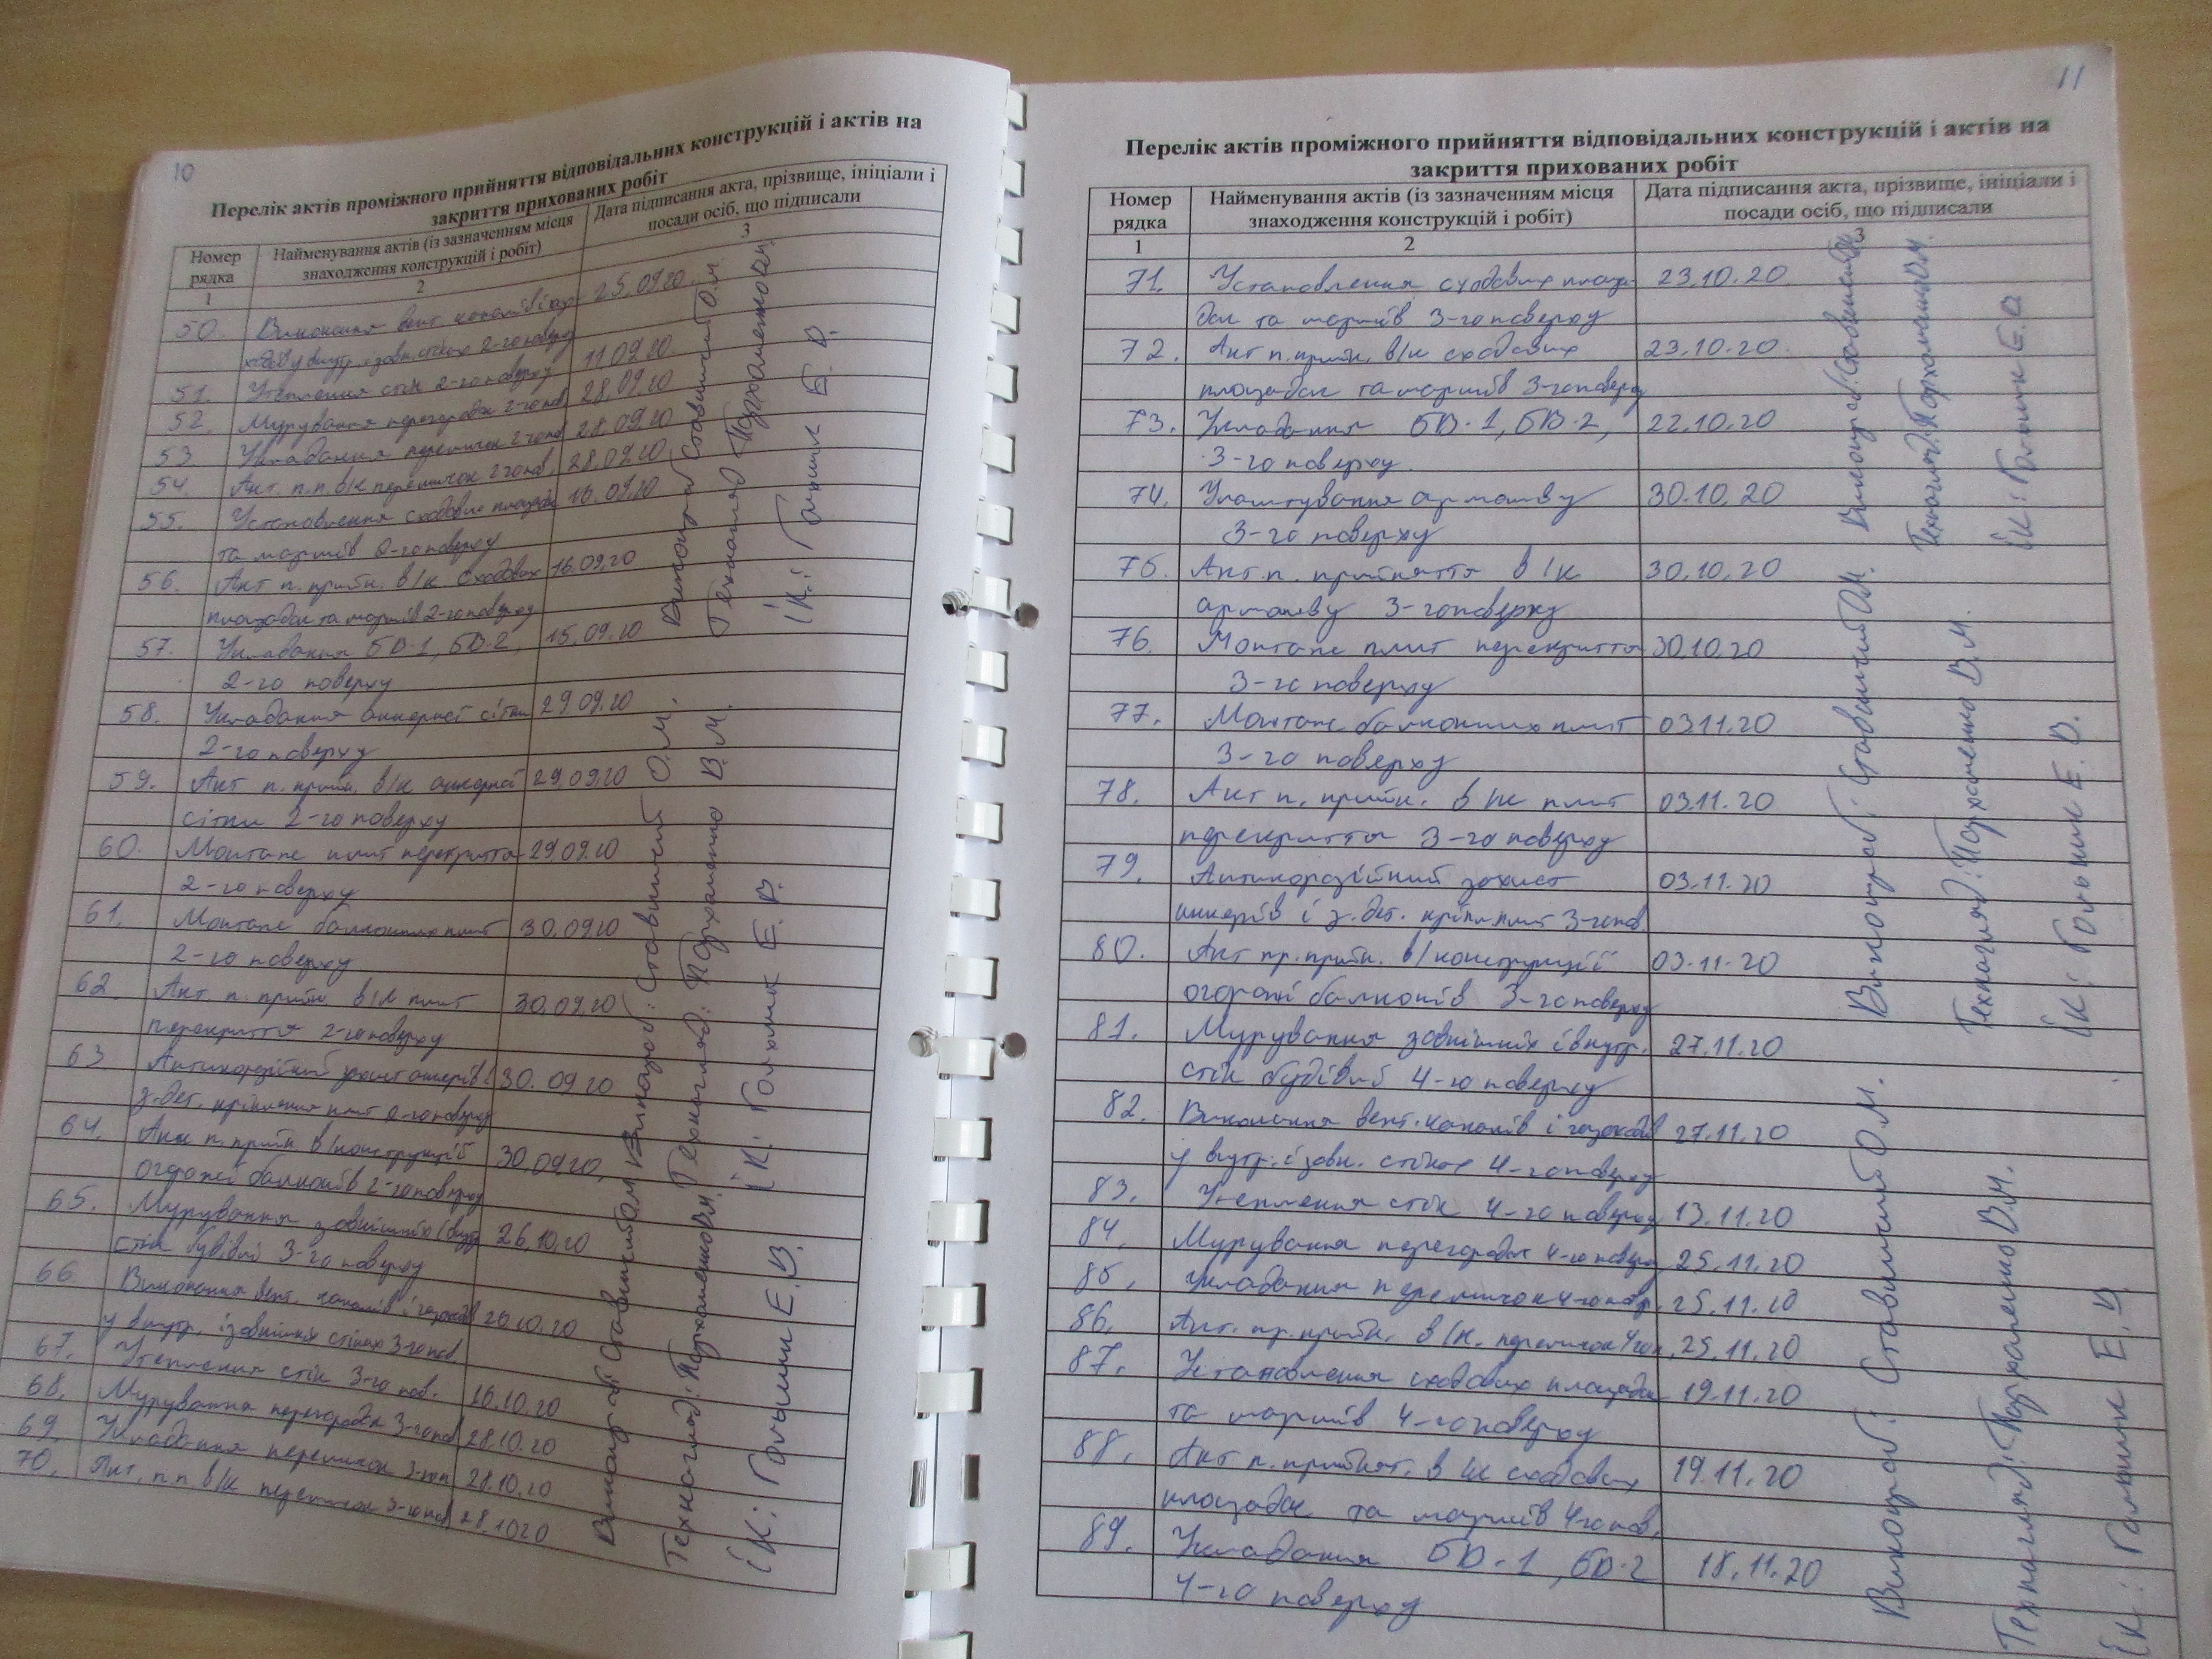 10
Перелік актів проміжного прийняття відповідальних конструкцій і актів на
закриття прихованих робіт
Номер рядка
Найменування актів (із зазначенням місця знаходження конструкцій і робіт)
Дата підписання акта, прізвище, ініціали і посади осіб, що підписали
1 2 3
50. Виконання вент. каналів і 25.09.20
у внутр. зовн. стінах 2-го поверху
51. Утеплення стін 2-го поверху 11.09.20
52. Мурування перегородок 2-го пов. 28.09.20
53. Укладання перемичок 2-го пов. 28.09.20
54. Акт. п.п. в/к перемичок 2 го пов. 28.09.20
55. Установлення сходових площадок 16.09.20
та маршів 2-го поверху
56. Акт п. прийн. в/к сходових 16.09.20
площадок та маршів 2-го поверху
57. Укладання БВ-1, БВ-2, 15.09.20
2-го поверху
58. Укладання анкерної сітки 29.09.20
2-го поверху
59. Акт п. прийн. в/к анкерної 29.09.20
сітки 2-го поверху
60. Монтаж плит перекриття 29.09.20
2-го поверху
61. Монтаж балконних плит 30.09.20
2-го поверху
62 Акт. п. прийн. в/к плит 30.09.20
перекриття 2-го поверху
63 Антикорозійний захист анкерів і 30.09.20
з.дет. кріплення плит 2-го поверху
64. Акт п. прийн в/конструкцій 30.09.20,
огорожі балконів 2-го поверху
65. Мурування зовнішніх і внутр 26.10.20
стін будівлі 3-го поверху
66. Виконання вент. каналів і газоходів 26.10.20
у внутр. і зовнішніх стінах 3-го пов.
67. Утеплення стін 3-го пов. 16.10.20
68. Мурування перегородок 3-го пов 28.10.20
69. Укладання перемичок 3-го п 28.10.20
70. Акт. п.п в/к перемичок 3-го пов 28.1020
Виконроб Ставничий О.М
Технагляд Пархоменко В.М.
ІК: Гальчик Е. В.
Виконроб: Ставничий О.М.
Технагляд: Пархоменко В.М.
ІК: Гальчик Е.В.
Виконроб: Ставничий О.М
Технагляд: Пархоменко В.М.
ІК: Гальчик Е.В.
11
Перелік актів проміжного прийняття відповідальних конструкцій і актів на
закриття прихованих робіт
Номер рядка
Найменування актів (із зазначенням місця знаходження конструкцій і робіт)
Дата підписання акта, прізвище, ініціали і посади осіб, що підписали
1 2 3
71. Установлення сходових площа- 23.10.20
док та маршів 3-го поверху
72. Акт п. прийн. в/к сходових 23.10.20
площадок та маршів 3-го поверху
73. Укладання БВ-1, БВ-2, 22.10.20
3-го поверху.
74. Улаштування армошву 30.10.20
3-го поверху
75. Акт п. прийняття в/к 30.10.20
армошву 3-го поверху
76. Монтаж плит перекриття 30.10.20
3-го поверху
77. Монтаж балконних плит 03.11.20
3-го поверху
78. Акт п. прийн. в/к плит 03.11.20
перекриття 3-го поверху
79. Антикорозійний захист 03.11.20
анкерів і з.дет. кріпл. плит 3-го пов.
80. Акт пр. прийн. в/конструкцій 03.11.20
огорожі балконів 3-го поверху
81. Мурування зовнішніх і внутр. 27.11.20
стін будівлі 4-го поверху
82. Виконання вент. каналів і газоходів 27.11.20
у внутр. і зовн. стінах 4-го поверху
83. Утеплення стін 4-го поверху 13.11.20
84. Мурування перегородок 4-го поверху 25.11.20
85. Укладання перемичок 4-го пов. 25.11.20
86. Акт. пр. прийн. в/к. перемичок 4 го п. 25.11.20
87. Установлення сходових площадок 19.11.20
та маршів 4-го поверху
88. Акт п. прийнят. в/к сходових 19.11.20
площадок та маршів 4-го пов.
89. Укладання БВ-1, БВ-2 18.11.20
4-го поверху
Виконроб: Ставничий
Технагляд: Пархоменко В.М.
ІК: Гальчик Е.В.
Виконроб: Ставничий О.М.
Технагляд: Пархоменко В.М.
ІК: Гальчик Е. В.
Виконроб: Ставничий О.М.
Технагляд: Пархоменко В.М.
ІК: Гальчик Е.В